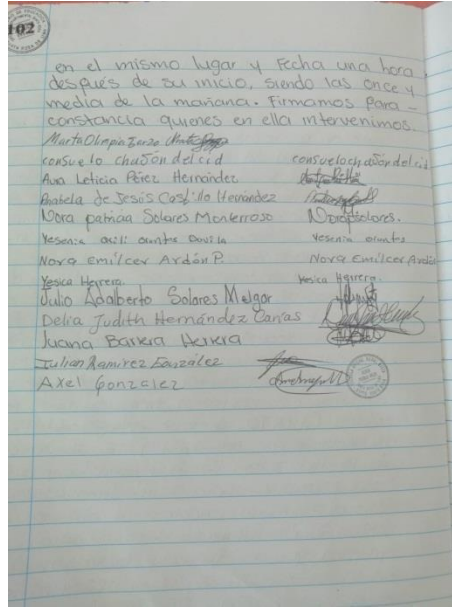 102
en el mismo lugar y Fecha una hora
después de su inicio, siendo las once y
media de la mañana. Firmamos Para-
constancia quienes en ella intervenimos.
Marta Olimpia
consuelo chaJón del cid consuelo chaJón del cid
Aura Leticia Pérez Hernández
de Jesús Castillo Hernández
Nora patricia Solares Monterroso Norapsolares.
Yesenia Yesenia
Nora Emilcer Ardón P. Nora Emilcer Ardón
Yesica Herrera. Yesica Herrera.
Julio Adalberto Solares Melgar
Delia Judith Hernández Canas
Juana Barrera Herrera
Julian Ramirez González
Axel Gonzalez